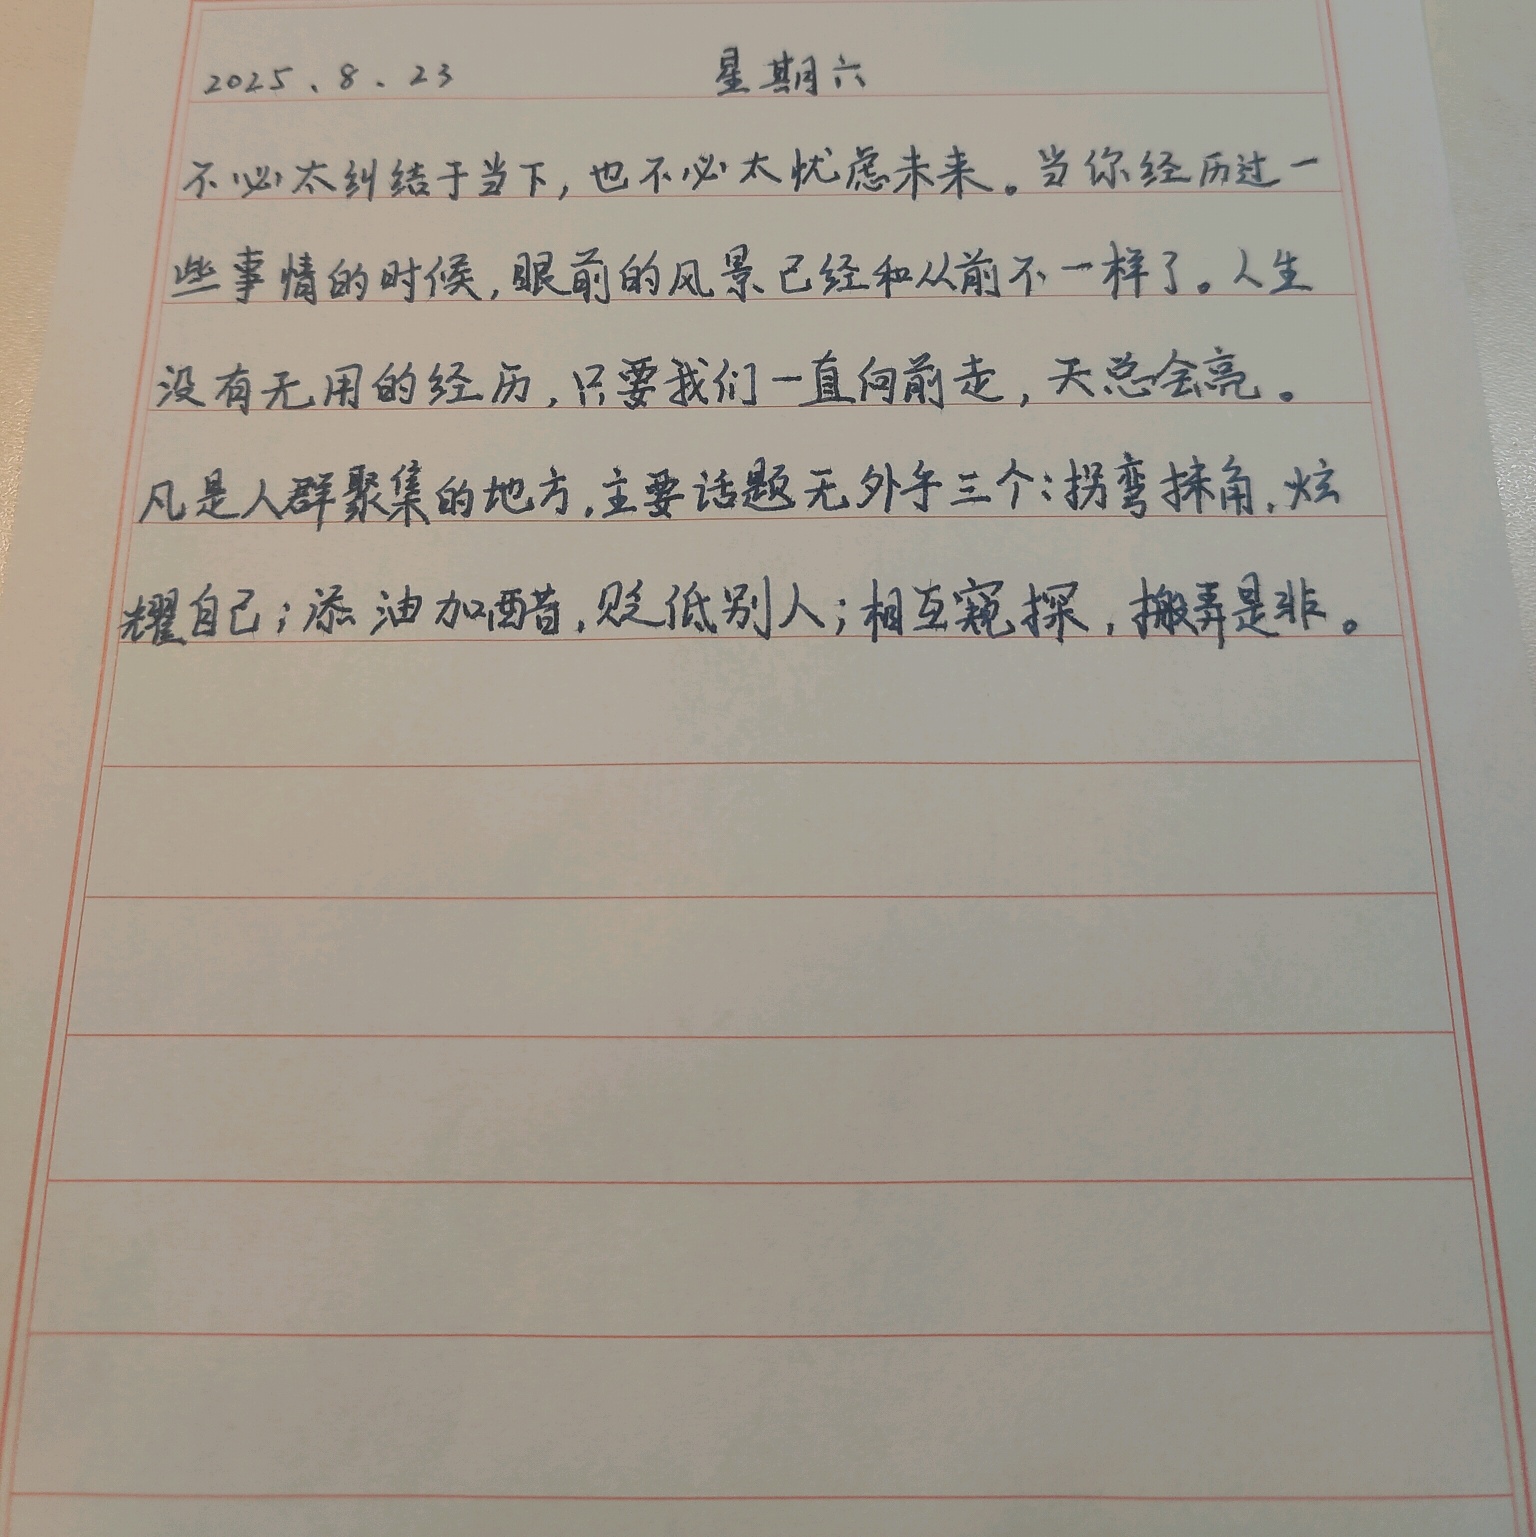 2025.8.23 星期六
不必太纠结于当下,也不必太忧虑未来。当你经历过一
些事情的时候,眼前的风景已经和从前不一样了。人生
没有无用的经历,只要我们一直向前走,天总会亮。
凡是人群聚集的地方,主要话题无外乎三个:拐弯抹角,炫
耀自己;添油加醋,贬低别人;相互窥探,搬弄是非。